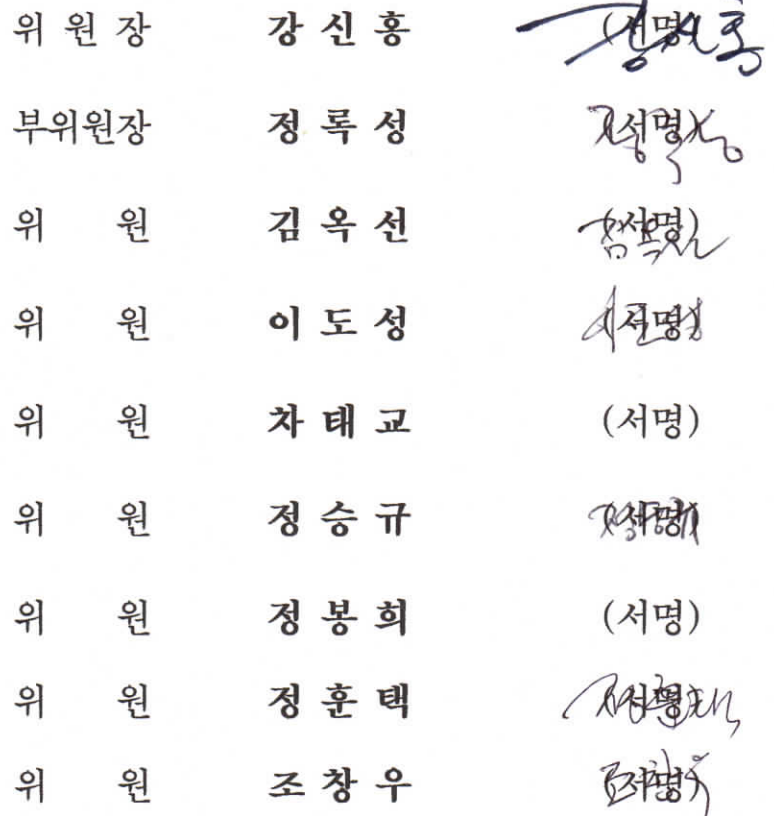 위 원 장 강 신 홍 (서명)
부위원장 정 록 성 (서명)
위 원 김 옥 선 (서명)
위 원 이 도 성 (서명)
위 원 차 태 교 (서명)
위 원 정 승 규 (서명)
위 원 정 봉 희 (서명)
위 원 정 훈 택 (서명)
위 원 조 창 우 (서명)